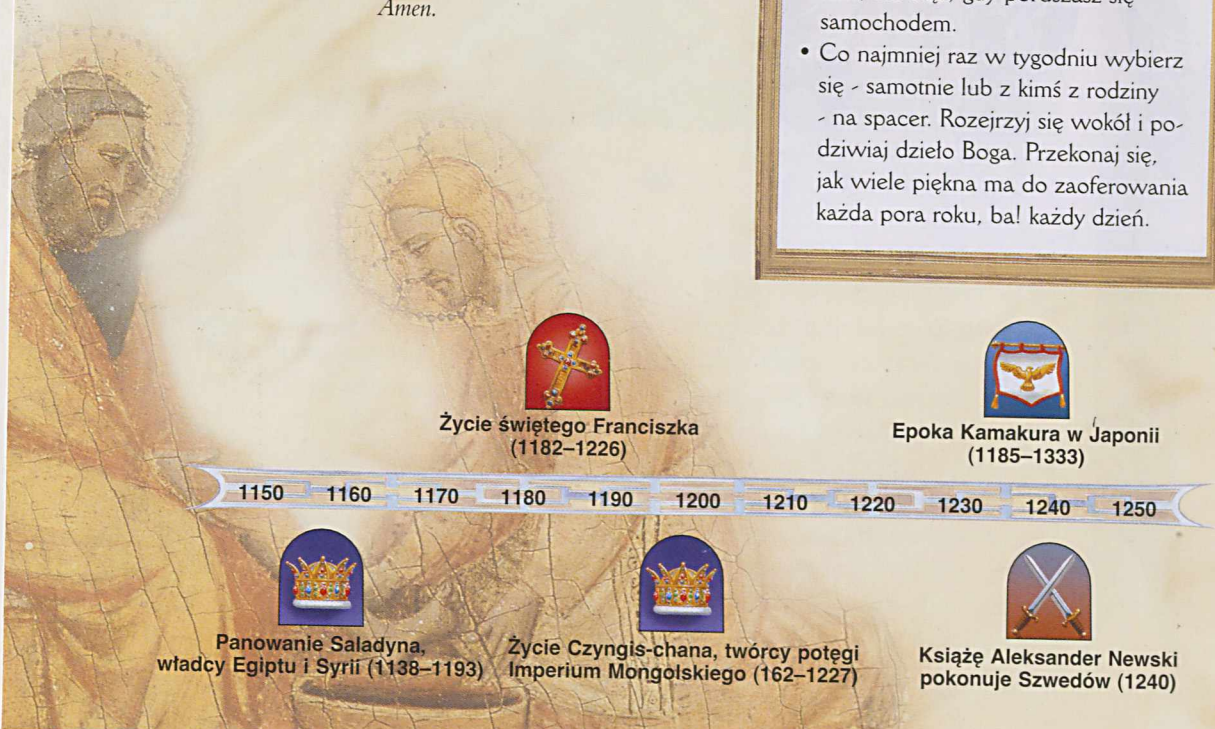 Amen.
samochodem.
• Co najmniej raz w tygodniu wybierz
się - samotnie lub z kimś z rodziny
- na spacer. Rozejrzyj się wokół i po-
dziwiaj dzieło Boga. Przekonaj się,
jak wiele piękna ma do zaoferowania
każda pora roku, ba! każdy dzień.
Życie świętego Franciszka
(1182–1226)
Epoka Kamakura w Japonii
(1185–1333)
1150 1160 1170 1180 1190 1200 1210 1220 1230 1240 1250
Panowanie Saladyna,
władcy Egiptu i Syrii (1138–1193)
Życie Czyngis-chana, twórcy potęgi
Imperium Mongolskiego (162–1227)
Książę Aleksander Newski
pokonuje Szwedów (1240)